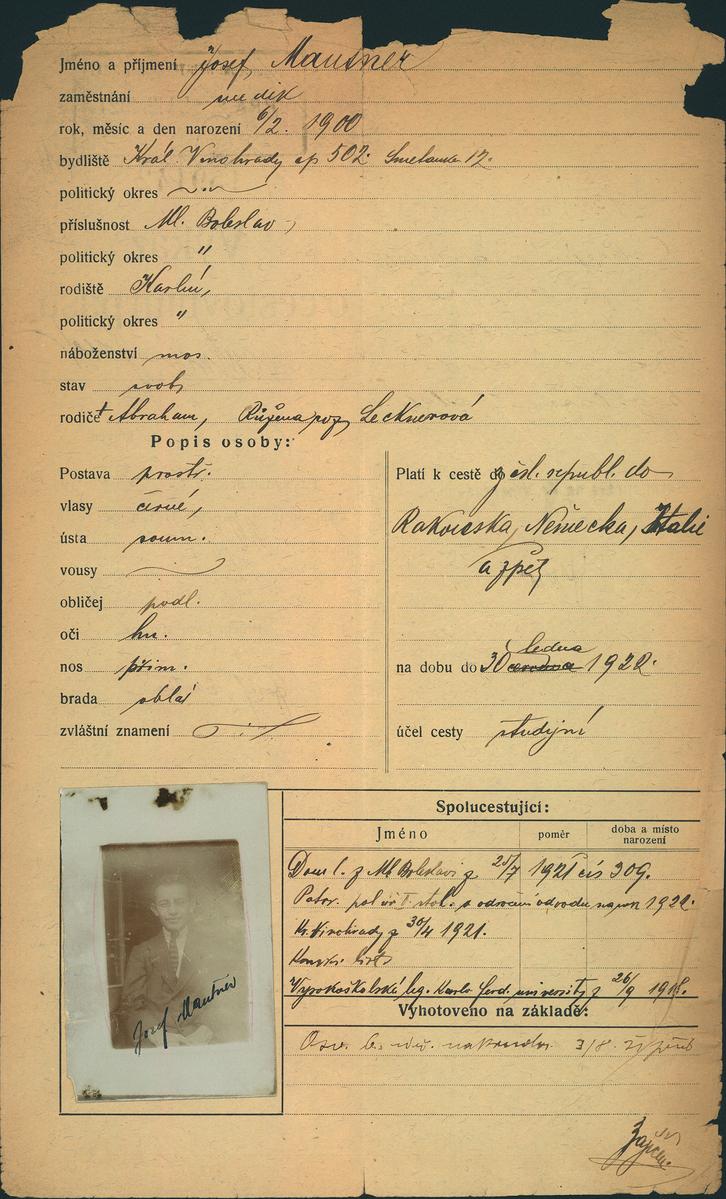 Jméno a příjmení Josef Mautner
zaměstnání medik
rok, měsíc a den narození 6/2. 1900
bydliště Král. Vinohrady čp 502. Smetanka 12.
politický okres
příslušnost Ml. Boleslav
politický okres "
rodiště Karlín,
politický okres "
náboženství mos.
stav svob.
rodiče † Abraham, Růžena roz. Lecknerová
Popis osoby:
Postava prostř.
vlasy černé,
ústa soum.
vousy
obličej podl.
oči hn.
nos přim.
brada oblá
zvláštní znamení
Platí k cestě z čsl. republ. do
Rakouska, Německa, Italie
a zpět
na dobu do 30 ledna 1922.
účel cesty studijní
Spolucestující:
Jméno
poměr
doba a místo
narození
Dom. l. z Ml. Boleslavi z 25/7 1921 čís 309.
Potvr. pol. úř. o odročení odvodu na rok 1922.
Kr. Vinohrady z 30/4 1921.
Konskr. list
Vysokoškolská leg. Karlo Ferd. university z 26/9 1918.
Vyhotoveno na základě:
3/8. 21
Josef Mautner